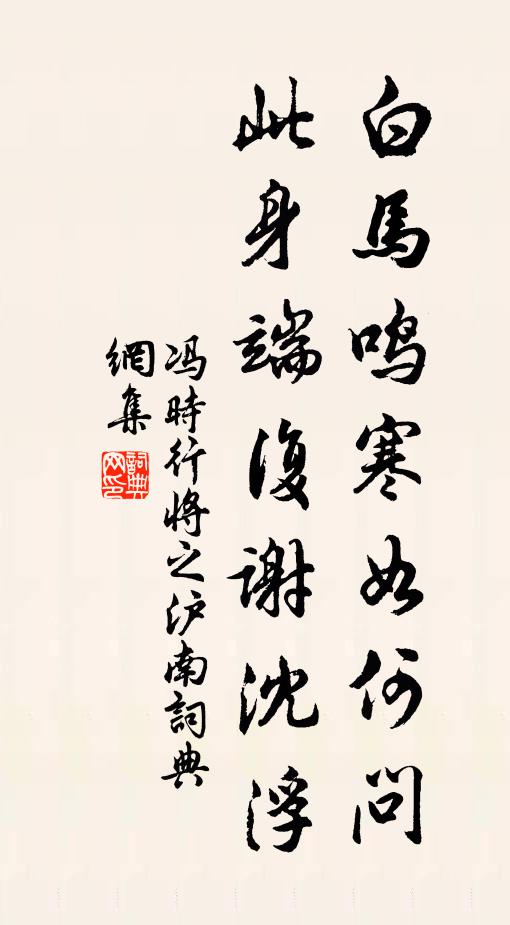 白馬鳴寒如何問
此身端復謝沈浮
冯時行將之泸南詞典
網集
詞典
网印